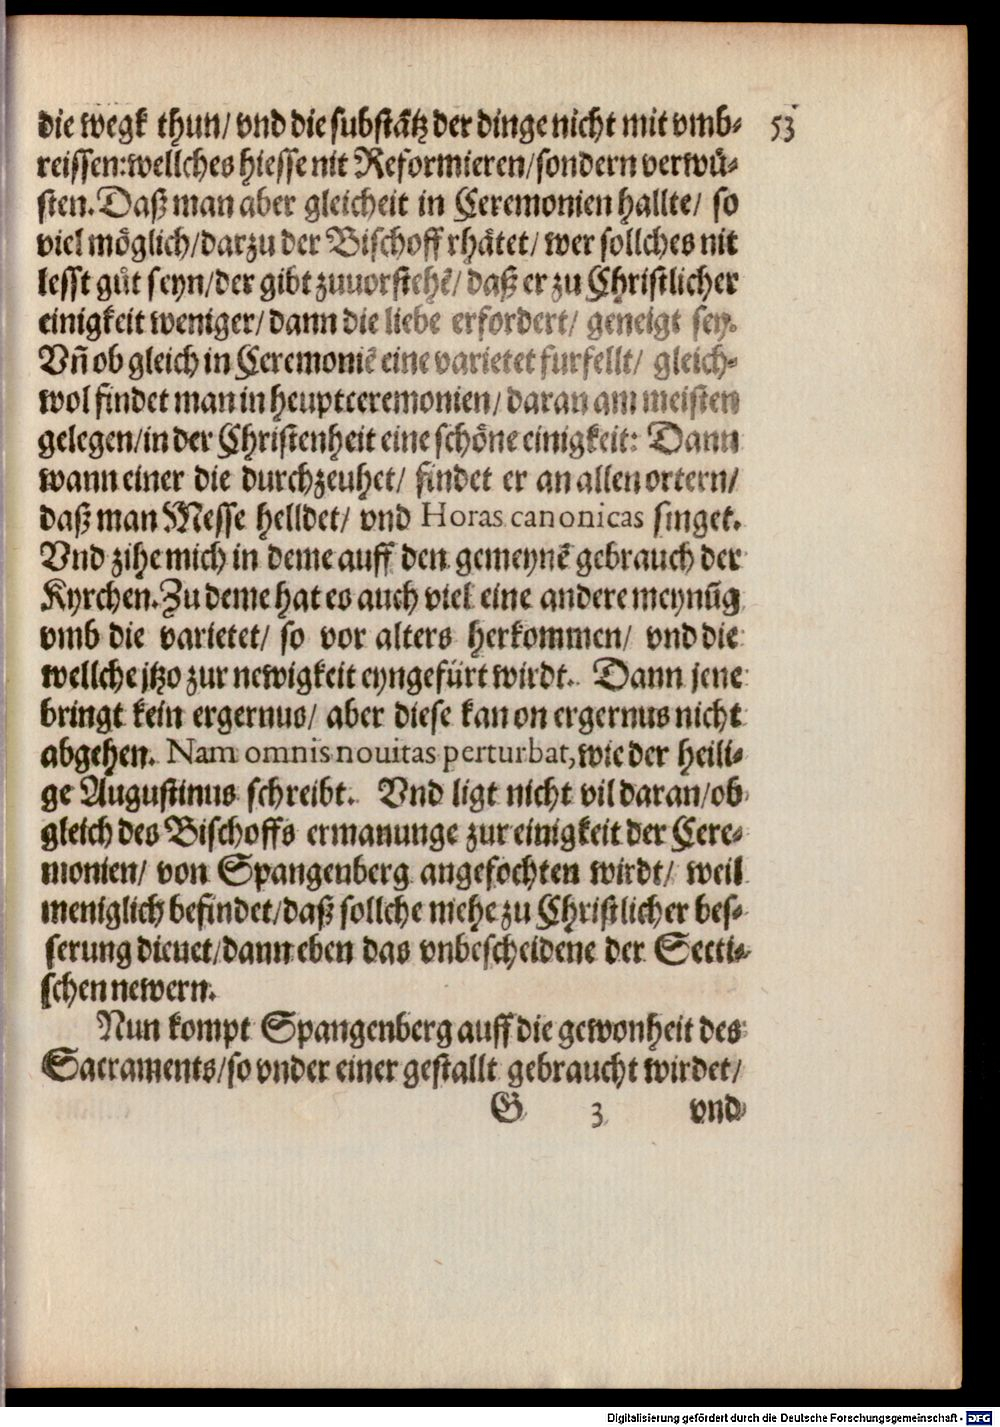 die wegk thun/ vnd die substātz der dinge nicht mit vmb- 53
reissen: wellches hiesse nit Reformieren/ sondern verwuͤ-
sten. Daß man aber gleicheit in Ceremonien hallte/ so
viel moͤglich/ darzu der Bischoff rhaͤtet/ wer sollches nit
lesst guͦt seyn/ der gibt zuuorstehē/ daß er zu Christlicher
einigkeit weniger/ dann die liebe erfordert/ geneigt sey.
Vñ ob gleich in Ceremoniē eine varietet furfellt/ gleich-
wol findet man in heuptceremonien/ daran am meisten
gelegen/ in der Christenheit eine schoͤne einigkeit: Dann
wann einer die durchzeuhet/ findet er an allen ortern/
daß man Messe helldet/ vnd Horas canonicas singet.
Vnd zihe mich in deme auff den gemeynē gebrauch der
Kyrchen. Zu deme hat es auch viel eine andere meynūg
vmb die varietet/ so vor alters herkommen/ vnd die
wellche jtzo zur newigkeit eyngefuͤrt wirdt. Dann jene
bringt kein ergernus/ aber diese kan on ergernus nicht
abgehen. Nam omnis nouitas perturbat, wie der heili-
ge Augustinus schreibt. Vnd ligt nicht vil daran/ ob
gleich des Bischoffs ermanunge zur einigkeit der Cere-
monien/ von Spangenberg angefochten wirdt/ weil
meniglich befindet/ daß sollche mehe zu Christlicher bes-
serung dienet/ dann eben das vnbescheidene der Secti-
schen newern.
Nun kompt Spangenberg auff die gewonheit des
Sacraments/ so vnder einer gestallt gebraucht wirdet/
G 3 vnd
Digitalisierung gefördert durch die Deutsche Forschungsgemeinschaft - DFG